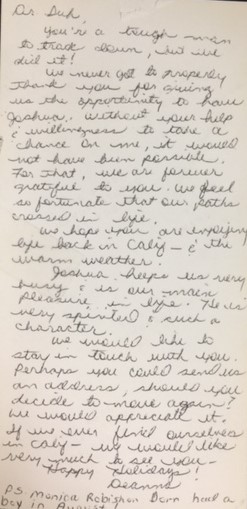 Dr. Suh,
You're a tough man
to track down, but we
did it!
We never got to properly
thank you for giving
us the opportunity to have
Joshua. Without your help
& willingness to take a
chance on me, it would
not have been possible.
For that, we are forever
grateful to you. We feel
so fortunate that our paths
crossed in life.
We hope you are enjoying
life back in Caly - & the
warm weather.
Joshua keeps us very
busy & is our main
pleasure in life. He is
very spirited & such a
character.
We would like to
stay in touch with you.
Perhaps you could send us
an address, should you
decide to move again?
We would appreciate it.
If we ever find ourselves
in Caly - we would like
very much to see you -
Happy Holidays!
Deanna
P.S. Monica Born had a
boy in August!